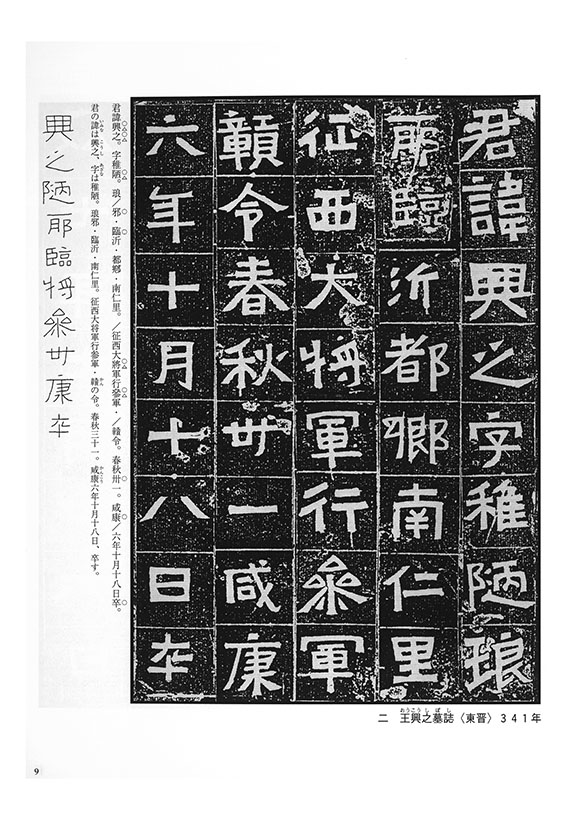 君諱興之字稚陋琅
耶臨沂都鄉南仁里
征西大將軍行參軍
贛令春秋卅一咸康
六年十月十八日卒
君諱興之。字稚陋。琅／邪・臨沂・都鄕・南仁里。／征西大將軍行參軍・／贛令。春秋卅一。咸康／六年十月十八日卒。
君の諱は興之、字は稚陋。琅邪・臨沂・南仁里。征西大将軍行参軍・贛の令。春秋三十一。咸康六年十月十八日、卒す。
興之陋耶臨將參卅康卒
二 王興之墓誌〈東晋〉341年
9